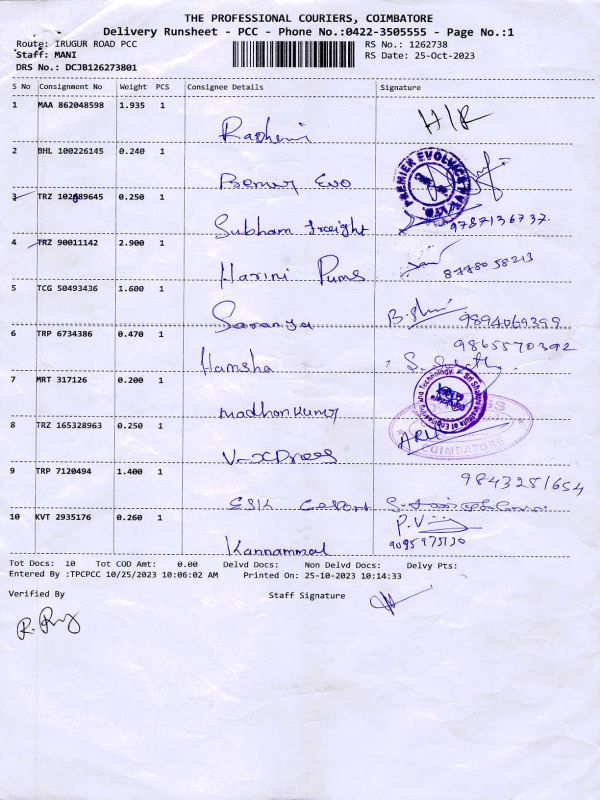 THE PROFESSIONAL COURIERS, COIMBATORE
Delivery Runsheet - PCC - Phone No.:0422-3505555 - Page No.:1
Route: IRUGUR ROAD PCC RS No.: 1262738
Staff: MANI RS Date: 25-Oct-2023
DRS No.: DCJB126273801
S No Consignment No Weight PCS Consignee Details Signature
1 MAA 862048598 1.935 1
Ragheni H/R
2 BHL 100226145 0.240 1
Premier Evo PREMIER EVOLVICS PVT. LTD.
3 TRZ 102689645 0.250 1
Subham freight 9787136737.
4 TRZ 90011142 2.900 1
Harini Pums 8778058213
5 TCG 50493436 1.600 1
Saranya 9894069399
6 TRP 6734386 0.470 1 9865570392
Hamsha
7 MRT 317126 0.200 1
Madhankumar
8 TRZ 165328963 0.250 1
V-XPress COIMBATORE
9 TRP 7120494 1.400 1 9843251654
ESIK
10 KVT 2935176 0.260 1
Kannammal 9095975130
Tot Docs: 10 Tot COD Amt: 0.00 Delvd Docs: Non Delvd Docs: Delvy Pts:
Entered By :TPCPCC 10/25/2023 10:06:02 AM Printed On: 25-10-2023 10:14:33
Verified By Staff Signature